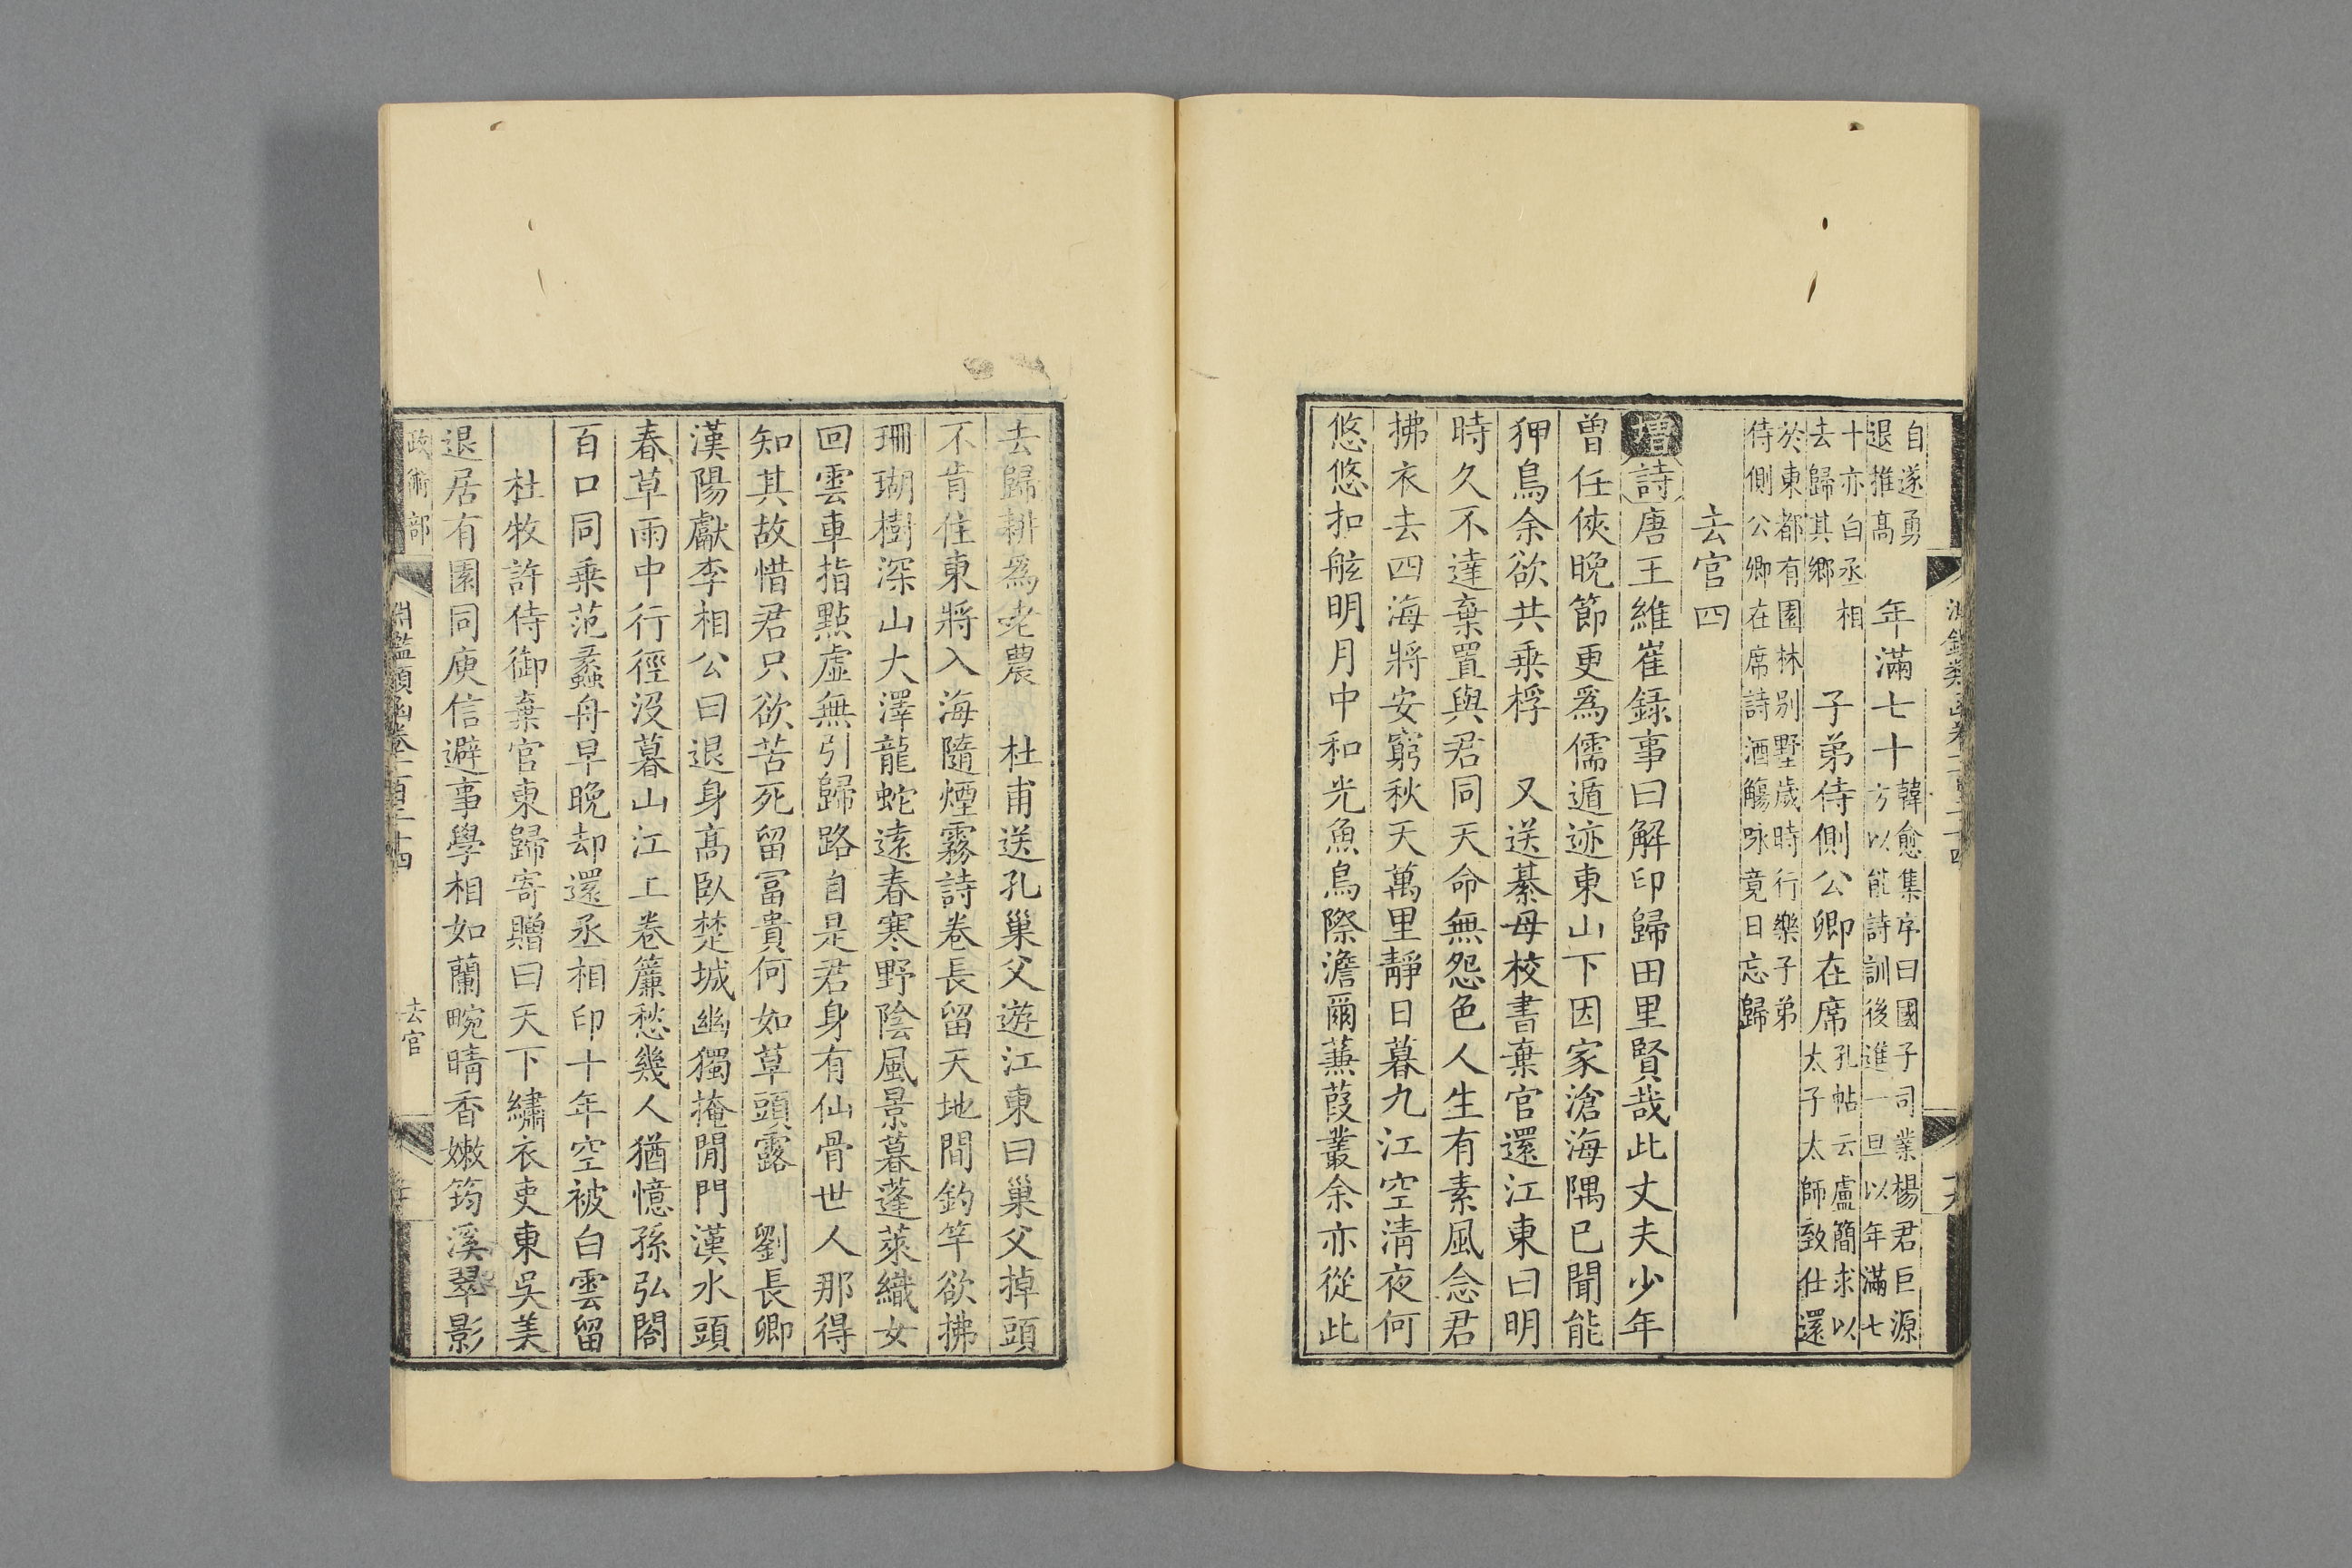 自遂勇退推高 年滿七十 韓愈集序曰國子司業楊君巨源方以能詩訓後進一旦以年滿七
十亦白丞相去歸其鄉 子弟侍側公卿在席 孔帖云盧簡求以太子太師致仕還
於東都有園林别墅歲時行樂子弟侍側公卿在席詩酒觴咏竟日忘歸
去官四
增詩唐王維崔録事曰解印歸田里賢哉此丈夫少年
曾任俠晚節更爲儒遁迹東山下因家滄海隅已聞能
狎鳥余欲共乘桴 又送綦母校書棄官還江東曰明
時久不達棄置與君同天命無怨色人生有素風念君
拂衣去四海將安窮秋天萬里靜日暮九江空清夜何
悠悠扣舷明月中和光魚鳥際澹爾蒹葭叢余亦從此
去歸耕爲老農 杜甫送孔巢父遊江東曰巢父掉頭
不肯住東將入海隨煙霧詩卷長留天地間釣竿欲拂
珊瑚樹深山大澤龍蛇遠春寒野陰風景暮蓬萊織女
回雲車指點虛無引歸路自是君身有仙骨世人那得
知其故惜君只欲苦死留富貴何如草頭露 劉長卿
漢陽獻李相公曰退身高臥楚城幽獨掩閒門漢水頭
春草雨中行徑没暮山江上卷簾愁幾人猶憶孫弘閣
百口同乘范蠡舟早晚却還丞相印十年空被白雲留
杜牧許侍御棄官東歸寄贈曰天下繡衣吏東吳美
退居有園同庾信避事學相如蘭畹晴香嫩筠溪翠影
政術部 淵鑑類函卷一百二十四 去官